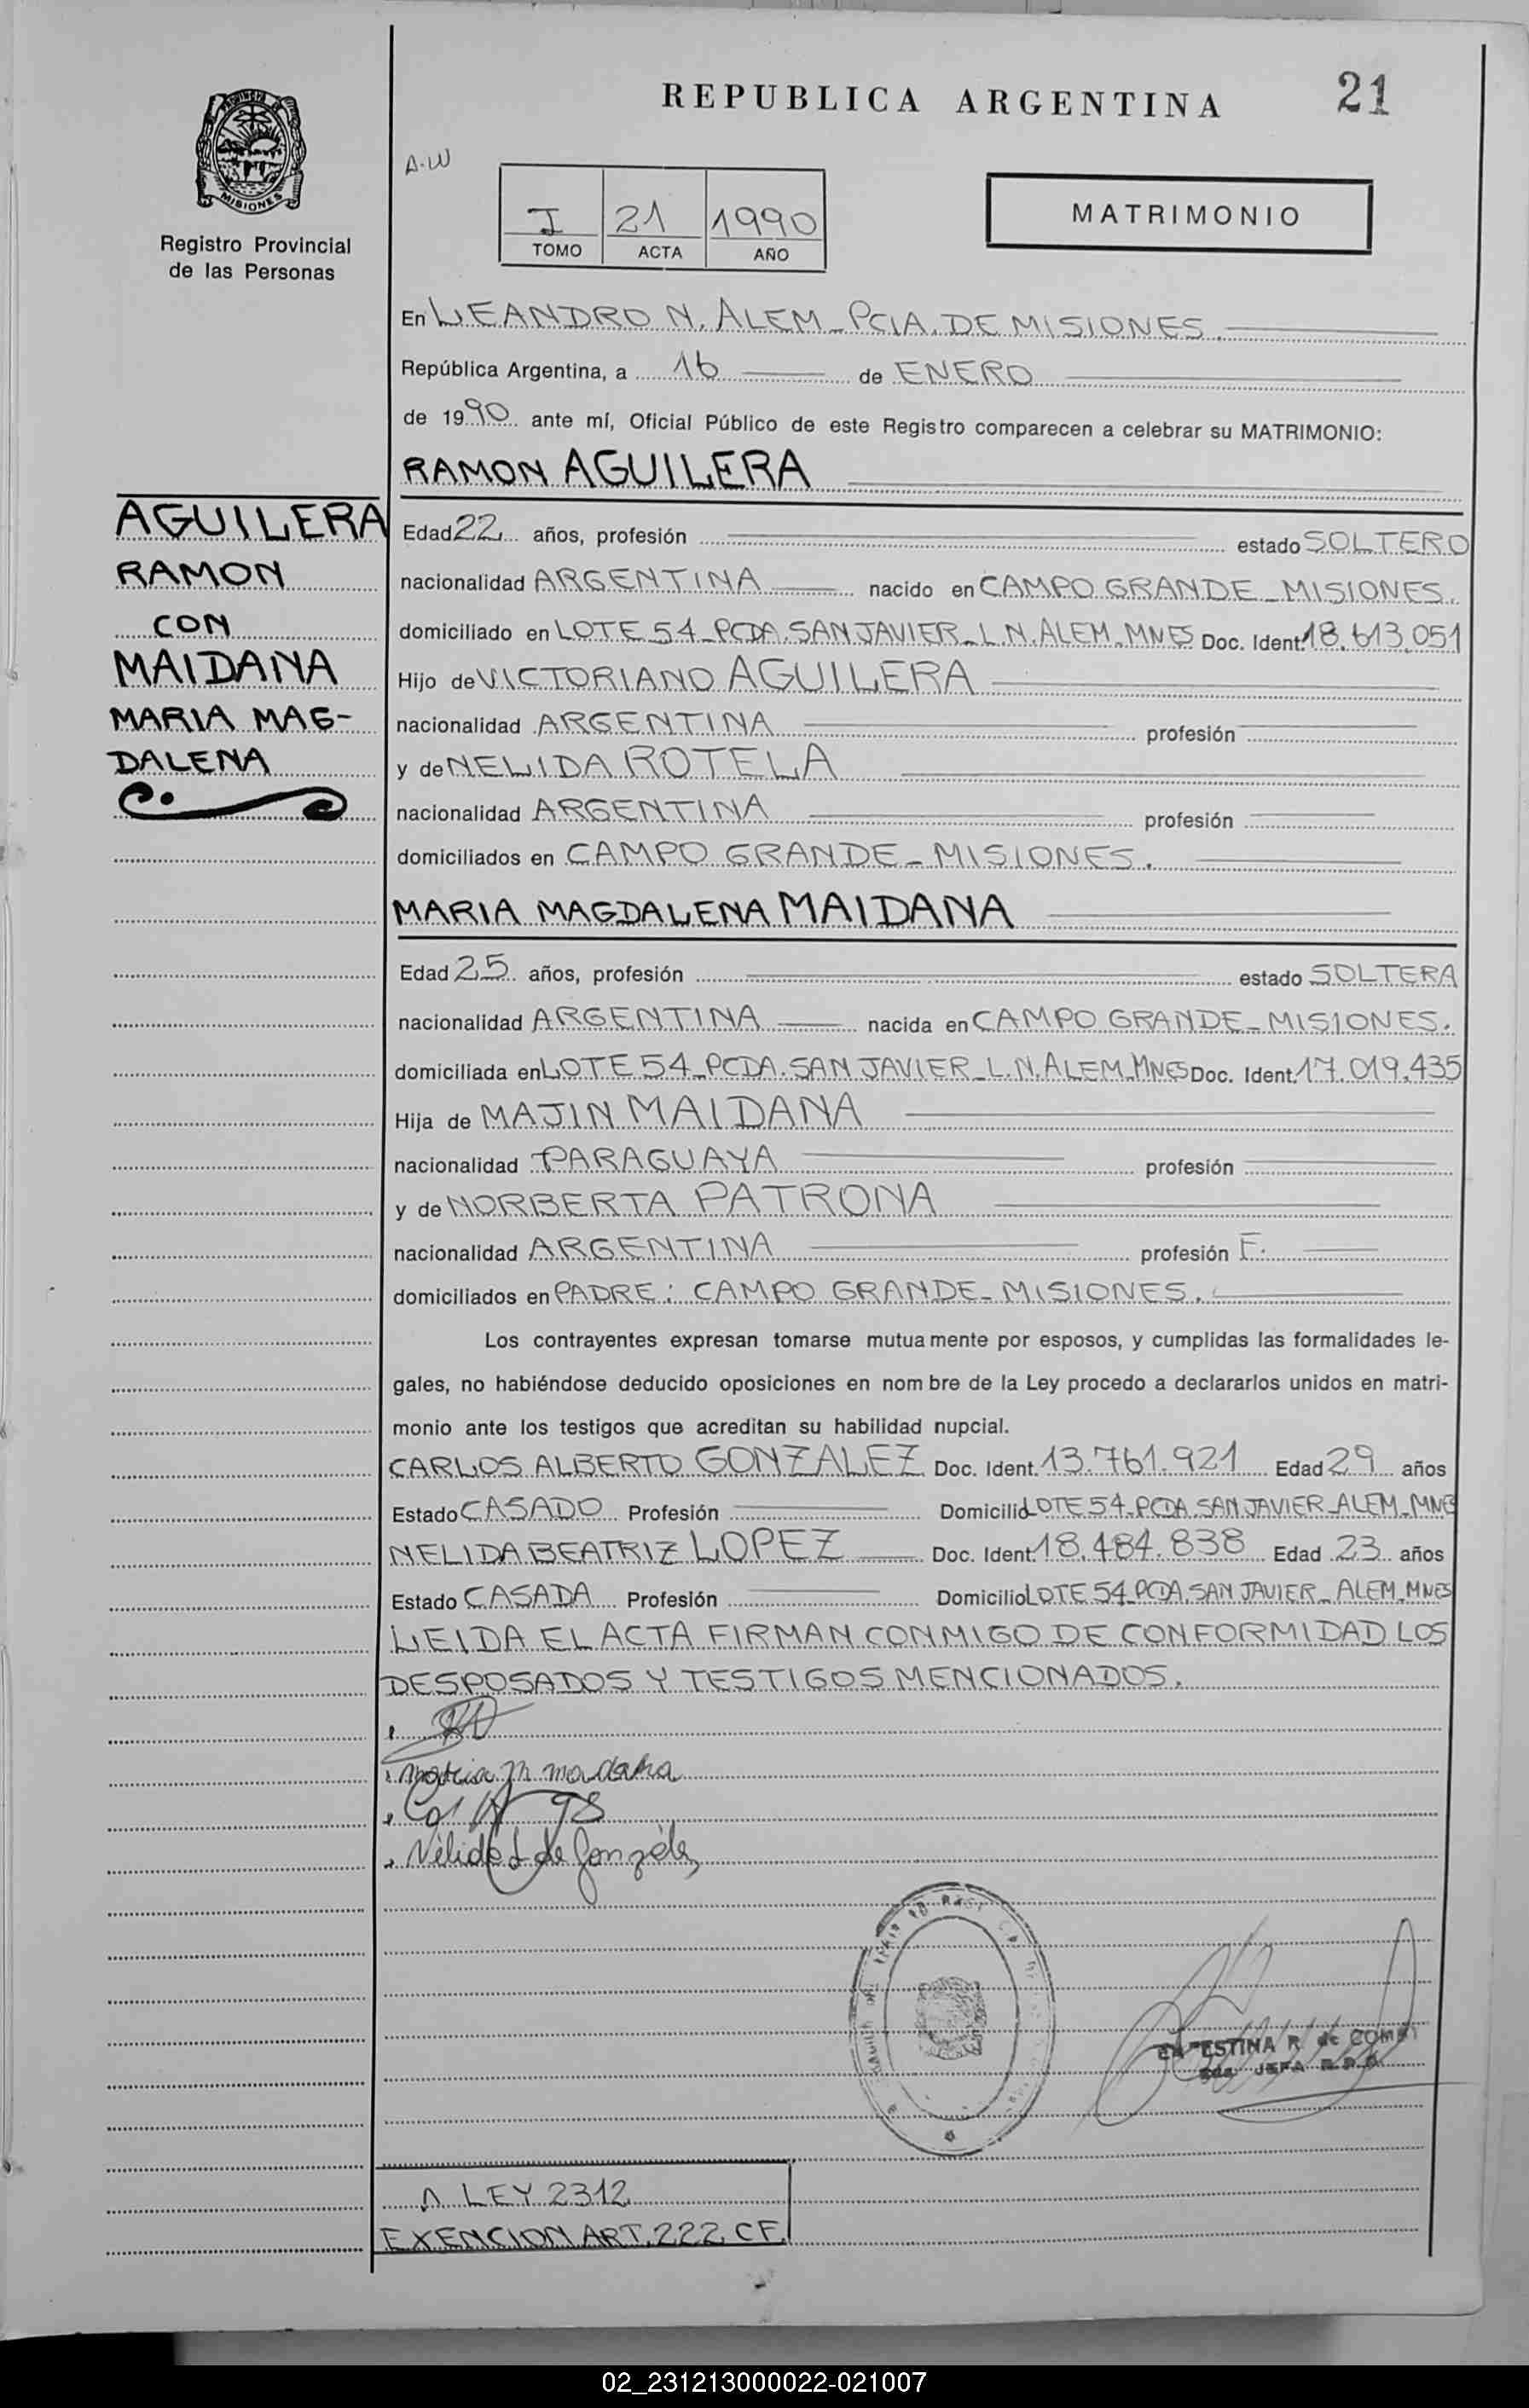 REPUBLICA ARGENTINA
21
PROVINCIA DE
MISIONES
Registro Provincial
de las Personas
A.W
I 21 1990
TOMO ACTA AÑO
MATRIMONIO
En LEANDRO N. ALEM_PCIA. DE MISIONES.
República Argentina, a 16 de ENERO
de 1990 ante mí, Oficial Público de este Registro comparecen a celebrar su MATRIMONIO:
RAMON AGUILERA
AGUILERA
RAMON
CON
MAIDANA
MARIA MAG-
DALENA
Edad 22 años, profesión estado SOLTERO
nacionalidad ARGENTINA nacido en CAMPO GRANDE_MISIONES.
domiciliado en LOTE 54_PCDA. SAN JAVIER_L.N. ALEM_MNES Doc. Ident. 18.613.051
Hijo de VICTORIANO AGUILERA
nacionalidad ARGENTINA profesión
y de NELIDA ROTELA
nacionalidad ARGENTINA profesión
domiciliados en CAMPO GRANDE_MISIONES.
MARIA MAGDALENA MAIDANA
Edad 25 años, profesión estado SOLTERA
nacionalidad ARGENTINA nacida en CAMPO GRANDE_MISIONES.
domiciliada en LOTE 54_PCDA. SAN JAVIER_L.N. ALEM_MNES Doc. Ident. 17.019.435
Hija de MAJIN MAIDANA
nacionalidad PARAGUAYA profesión
y de NORBERTA PATRONA
nacionalidad ARGENTINA profesión F.
domiciliados en PADRE: CAMPO GRANDE_MISIONES.
Los contrayentes expresan tomarse mutuamente por esposos, y cumplidas las formalidades le-
gales, no habiéndose deducido oposiciones en nombre de la Ley procedo a declararlos unidos en matri-
monio ante los testigos que acreditan su habilidad nupcial.
CARLOS ALBERTO GONZALEZ Doc. Ident. 13.761.921 Edad 29 años
Estado CASADO Profesión Domicilio LOTE 54_PCDA. SAN JAVIER_ALEM_MNES
NELIDA BEATRIZ LOPEZ Doc. Ident. 18.484.838 Edad 23 años
Estado CASADA Profesión Domicilio LOTE 54_PCDA. SAN JAVIER_ALEM_MNES
LEIDA EL ACTA FIRMAN CONMIGO DE CONFORMIDAD LOS
DESPOSADOS Y TESTIGOS MENCIONADOS.
Nélida L de González
R. de
JEFA
A LEY 2312
EXENCION ART. 222 CF.
02_231213000022-021007